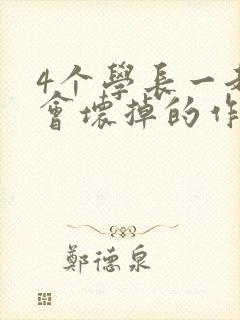 4个學長一
會壞掉的作
鄭德泉